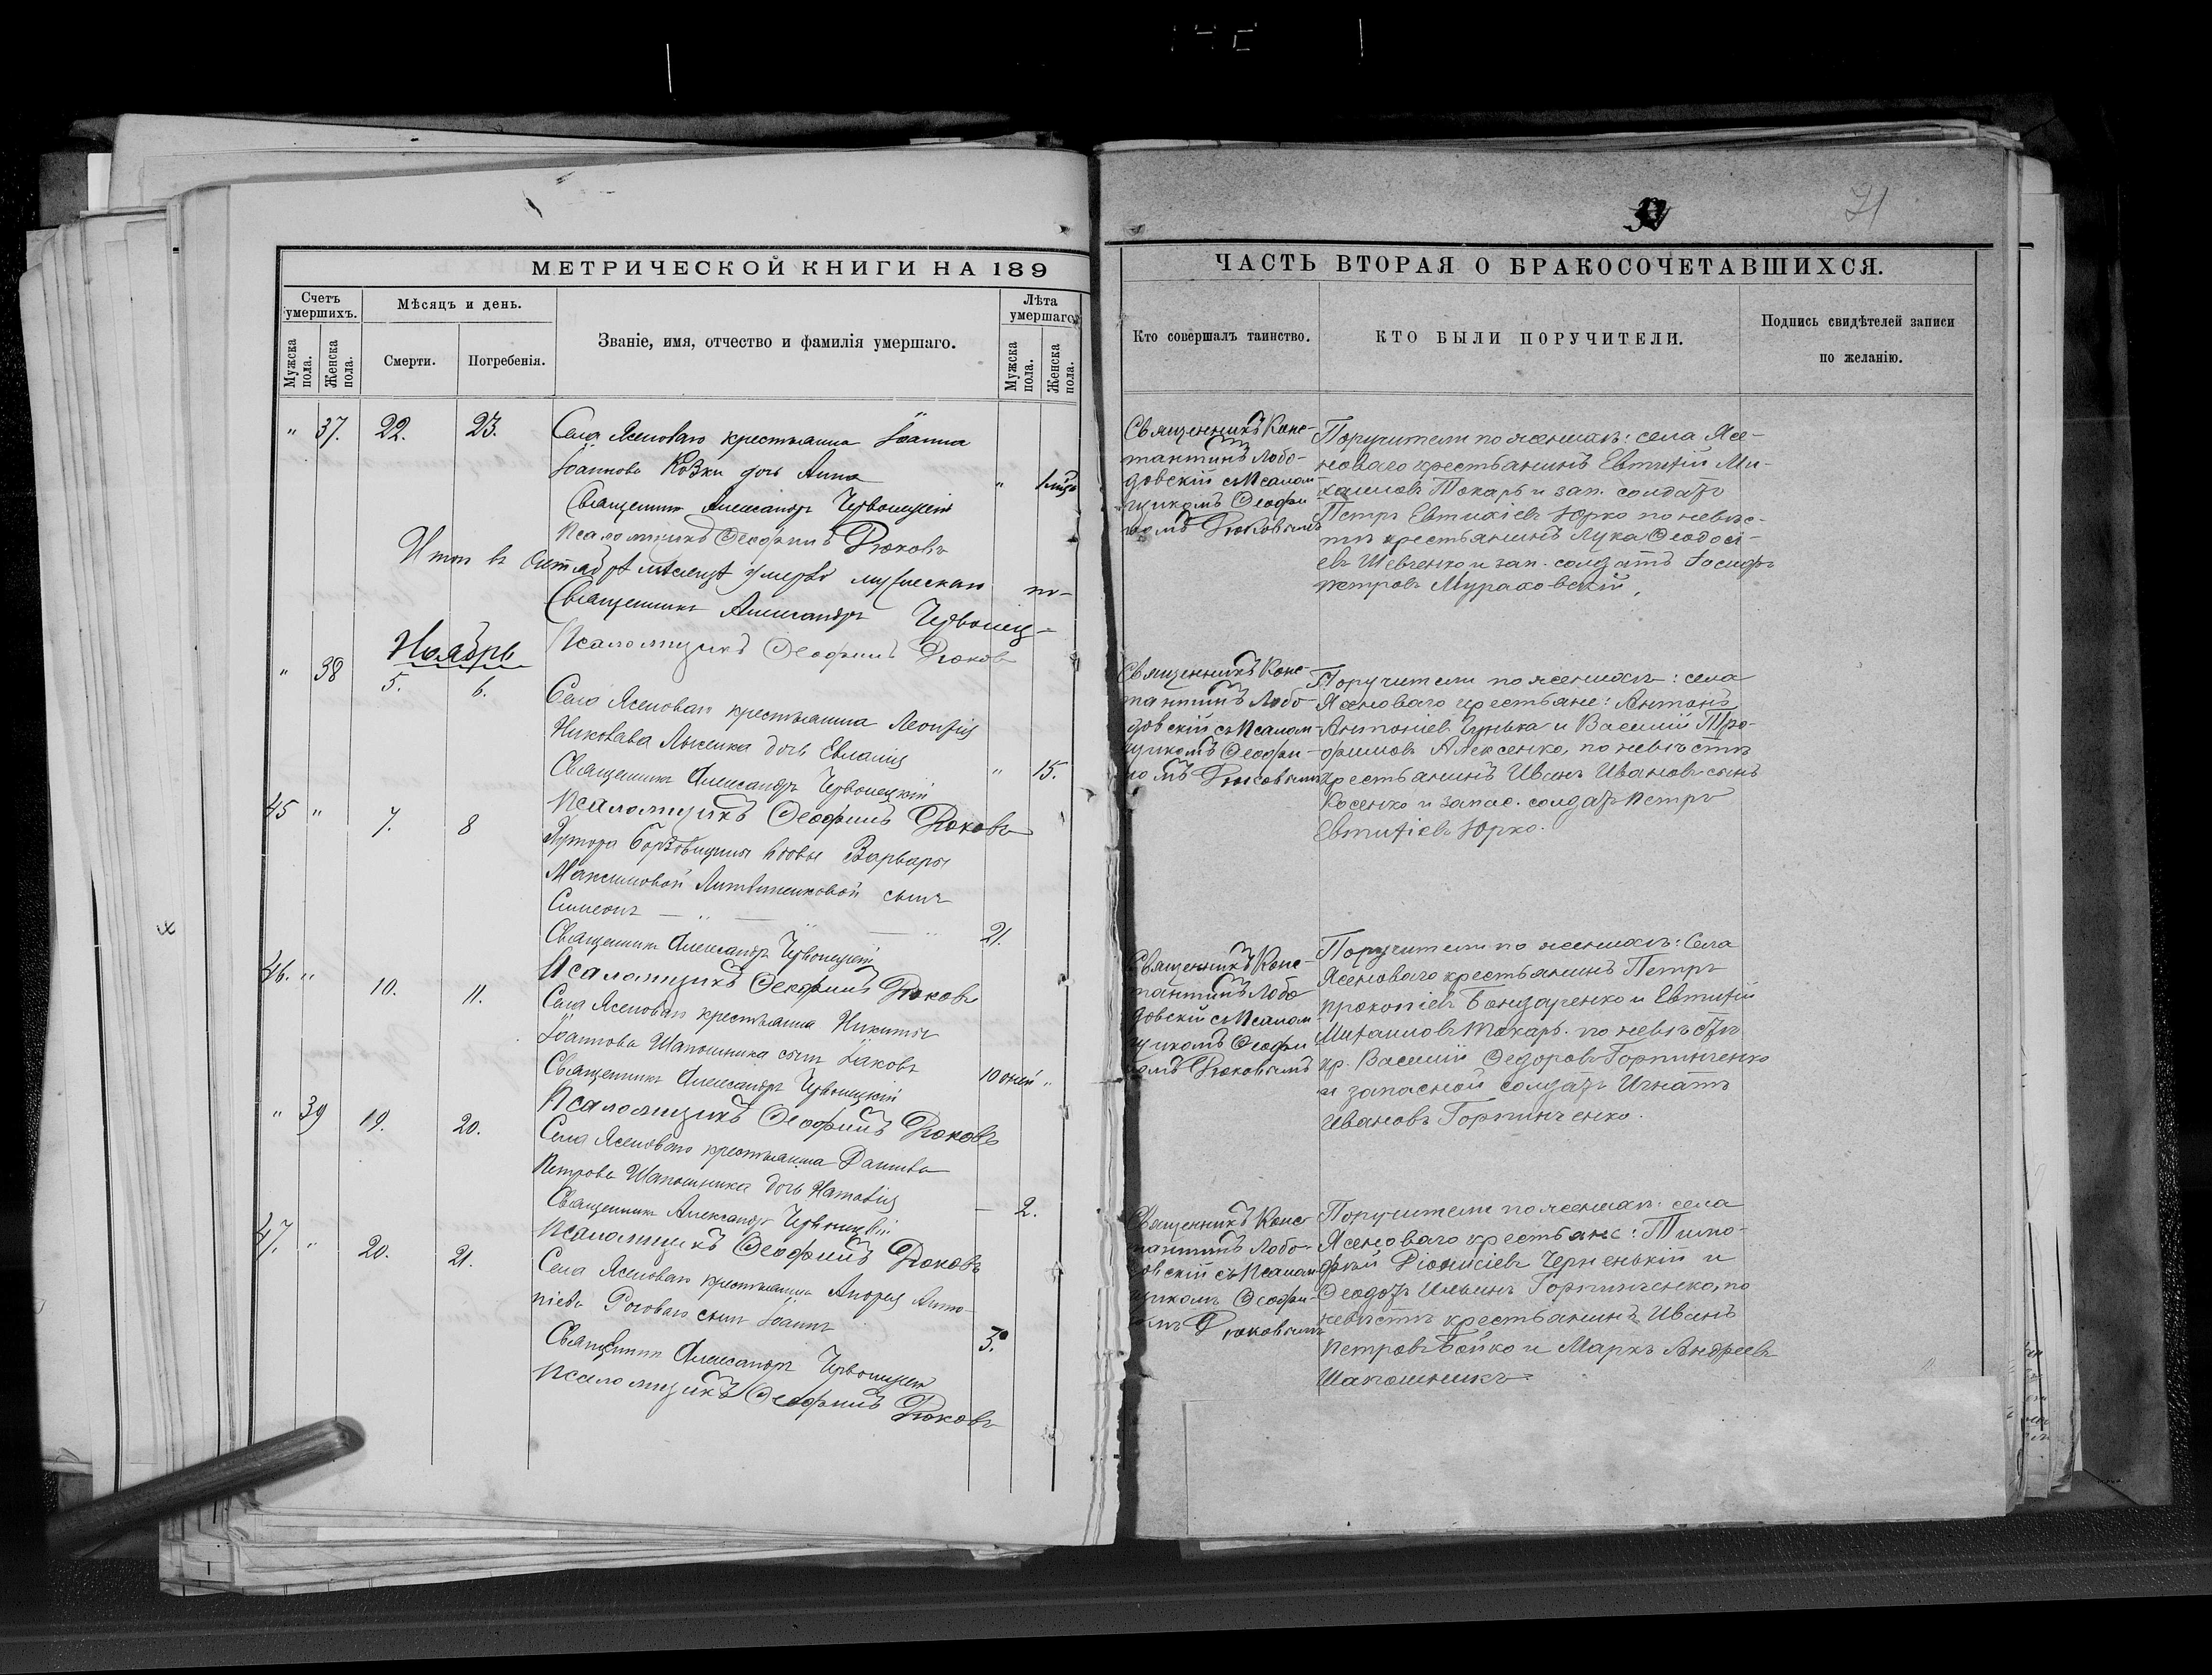 МЕТРИЧЕСКОЙ КНИГИ НА 189
Счетъ умершихъ.
Мѣсяцъ и день.
Званіе, имя, отчество и фамилія умершаго.
Лѣта умершаго.
Мужска пола.
Женска пола.
Смерти.
Погребенія.
Мужска пола.
Женска пола.
" 37. 22. 23. Села Ясеноваго крестьянина Іоанна
Іоаннова Козки дочь Анна "
Священникъ Александръ Червонецкій
Псаломщикъ Ѳеофилъ Дюковъ
Итого въ Октябрѣ мѣсяцѣ умерло мужескаго по-
Священникъ Александръ Червонец-
Псаломщикъ Ѳеофилъ Дюковъ
Ноябрь
" 38 5. 6. Села Ясеноваго крестьянина Леонтія
Николаева дочь Евлампія " 15.
Священникъ Александръ Червонецкій
Псаломщикъ Ѳеофилъ Дюковъ
45 " 7. 8 Хутора вдовы Варвары
Максимовой Литвиненковой сынъ
Симеонъ — " — " — " 21.
Священникъ Александръ Червонецкій
Псаломщикъ Ѳеофилъ Дюковъ
46. " 10. 11. Села Ясеноваго крестьянина Никиты
Іоаннова Шапошника сынъ Іаковъ 10 дней "
Священникъ Александръ Червонецкій
Псаломщикъ Ѳеофилъ Дюковъ
" 39 19. 20. Села Ясеноваго крестьянина Даниила
Петрова Шапошника дочь Наталія — 2.
Священникъ Александръ Червонецкій
Псаломщикъ Ѳеофилъ Дюковъ
47. " 20. 21. Села Ясеноваго крестьянина Андрея Анто-
ніева Роговаго сынъ Іоаннъ 3.
Священникъ Александръ Червонецкій
Псаломщикъ Ѳеофилъ Дюковъ
ЧАСТЬ ВТОРАЯ О БРАКОСОЧЕТАВШИХСЯ.
Кто совершалъ таинство.
КТО БЫЛИ ПОРУЧИТЕЛИ.
Подпись свидѣтелей записи
по желанію.
Священникъ Конс-
тантинъ Лобо-
довскій съ Псалом-
щикомъ Ѳеофи-
ломъ Дюковымъ
Поручители по женихѣ: села Ясе-
новаго крестьянинъ Евтихій Ми-
хаиловъ Токарь и зап. солдатъ
Петръ Евтихіевъ Юрко по невѣс-
тѣ крестьянинъ Лука Ѳеодосі-
евъ Шевченко и зап. солдатъ Іосифъ
Петровъ Мураховскій.
Священникъ Конс-
тантинъ Лобо-
довскій съ Псалом-
щикомъ Ѳеофи-
ломъ Дюковымъ
Поручители по женихѣ: села
Ясеноваго крестьяне: Антонъ
Антоніевъ и Василій Тро-
фимовъ Алексенко, по невѣстѣ
крестьянинъ Иванъ Ивановъ сынъ
Косенко и запас. солдатъ Петръ
Евтихіевъ Юрко.
Священникъ Конс-
тантинъ Лобо-
довскій съ Псалом-
щикомъ Ѳеофи-
ломъ Дюковымъ
Поручители по женихѣ: Села
Ясеноваго крестьянинъ Петръ
Прокопіевъ Бондаренко и Евтихій
Михаиловъ Токарь. по невѣстѣ
кр. Василій Ѳедоровъ Горпинченко
и запасной солдатъ Игнатъ
Ивановъ Горпинченко.
Священникъ Конс-
тантинъ Лобо-
довскій съ Псалом-
щикомъ Ѳеофи-
ломъ Дюковымъ
Поручители по женихѣ: села
Ясеноваго крестьяне: Тимо-
фей Діонисіевъ Черненькій и
Ѳеодотъ Ильинъ Горпинченко, по
невѣстѣ крестьянинъ Иванъ
Петровъ Бойко и Маркъ Андреевъ
Шапошникъ